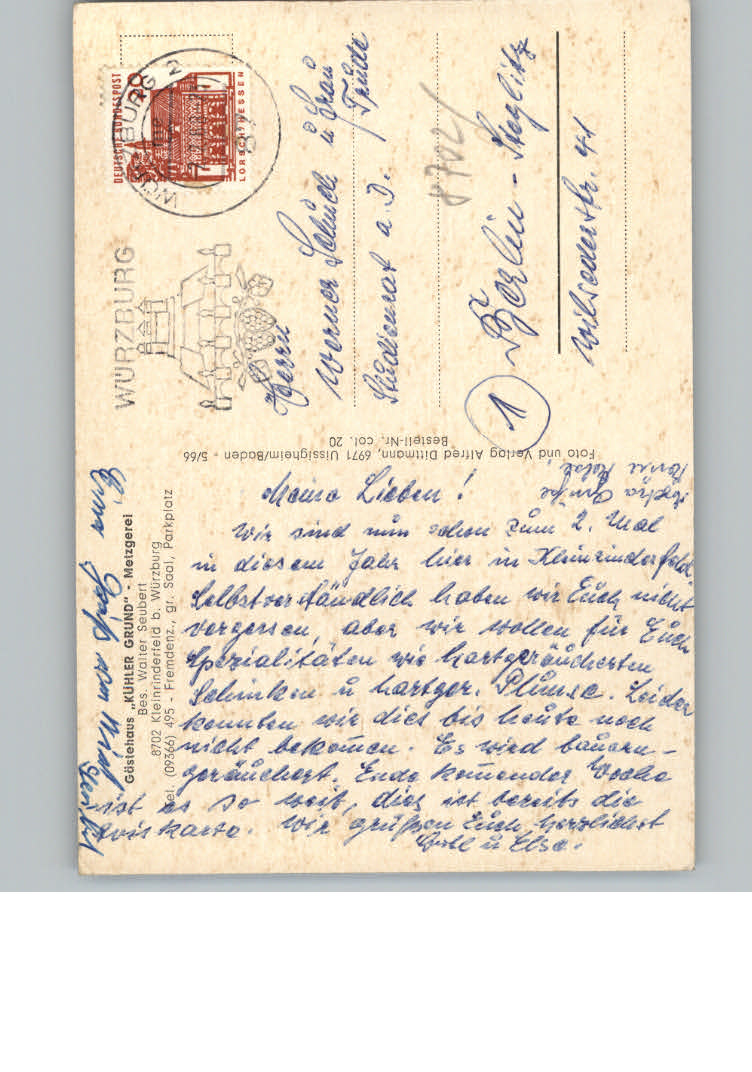 Gästehaus „KÜHLER GRUND" - Metzgerei
Bes. Walter Seubert
8702 Kleinrinderfeld b. Würzburg
Tel. (09366) 495 - Fremdenz., gr. Saal, Parkplatz
Meine Lieben!
Wir sind nun schon zum 2. Mal
in diesem Jahr hier in Kleinrinderfeld.
Selbstverständlich haben wir Euch nicht
vergessen, aber wir wollen für Euch
Spezialitäten wie hartgeräucherten
Schinken u hartger. Blunze. Leider
konnten wir dies bis heute noch
nicht bekomen. Es wird bauern-
geräuchert. Ende komender Woche
ist es so weit, dies ist bereits die
Aviskarte. Wir grüßen Euch herzlichst
u Else.
Foto und Verlag Alfred Dittmann, 6971 Uissigheim/Baden - 5/66
Bestell-Nr. col. 20
WÜRZBURG
WÜRZBURG 2
DEUTSCHE BUNDESPOST
20
LORSCH/HESSEN
Herrn
Werner Schuck u Frau
Studienrat a. D. Trude
8702/
1 Berlin-Steglitz
Wilsederstr. 41